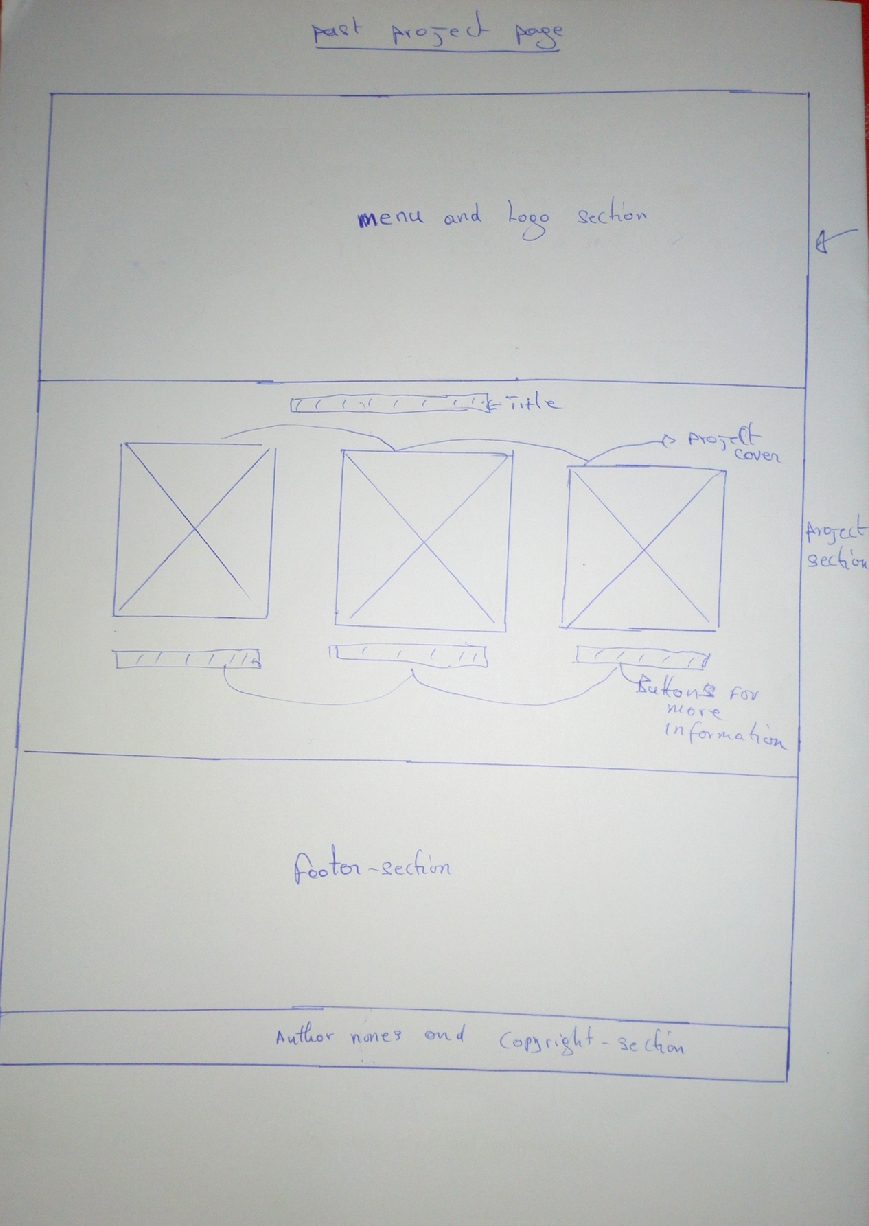 past project page
menu and Logo section
Title
project
cover
project
section
Buttons for
more
information
footer-section
Author nones and Copyright-section